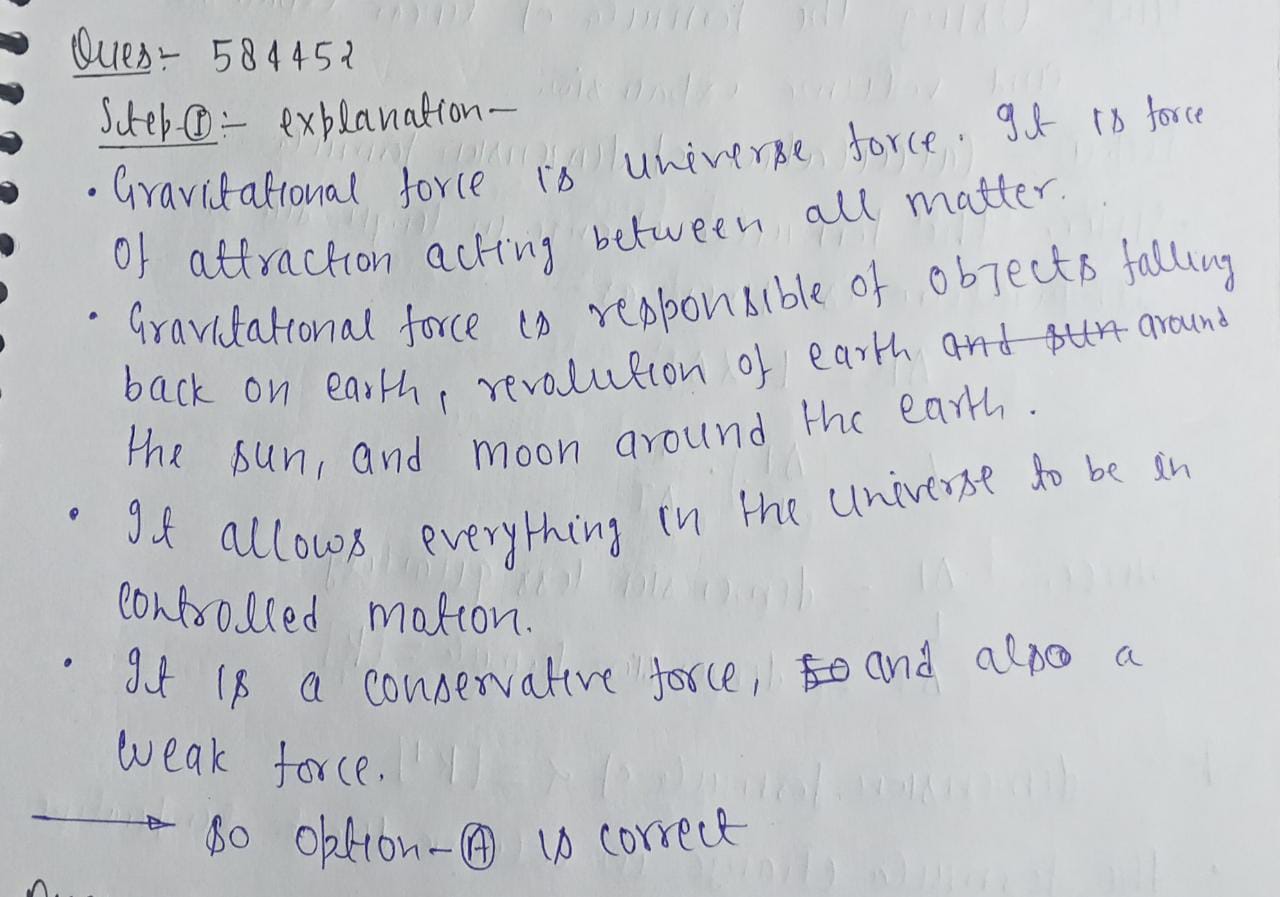 Ques:- 584452
Step-①:- explanation-
• Gravitational force is universe force. It is force
of attraction acting between all matter.
• Gravitational force is responsible of objects falling
back on earth, revalution of earth and sun around
the sun, and moon around the earth.
• It allows everything in the universe to be in
controlled motion.
• It is a conservative force, so and also a
weak force.
→ so option-Ⓐ is correct